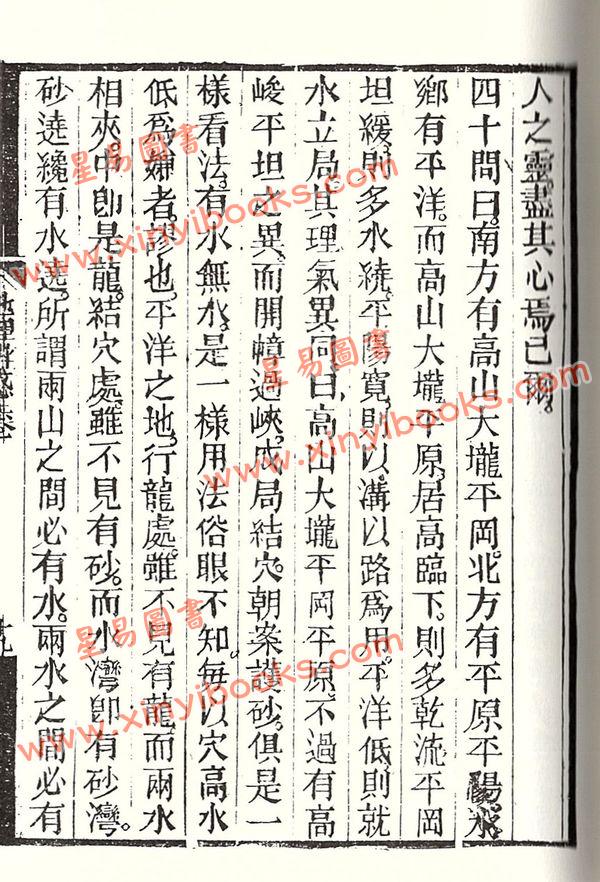 人之靈盡其心焉已爾。
四十問曰。南方有高山大壠平岡。北方有平原平陽。水
鄉有平洋。而高山大壠平原。居高臨下。則多乾流。平岡
坦緩。則多水繞。平陽寬。則以溝以路爲用。平洋低則就
水立局。其理氣異同。曰高山大壠平岡平原。不過有高
峻平坦之異。而開幛過峽。成局結穴。朝案護砂。俱是一
樣看法。有水無水。是一樣用法。俗眼不知。每以穴高水
低爲嫌者。謬也。平洋之地。行龍處。雖不見有龍。而兩水
相夾。中卽是龍。結穴處。雖不見有砂。而水灣卽有砂灣。
砂遶纔有水遶。所謂兩山之間必有水。兩水之間必有
星易圖書
www.xinyibooks.com
星易圖書
www.xinyibooks.com
星易圖書
www.xinyibooks.com